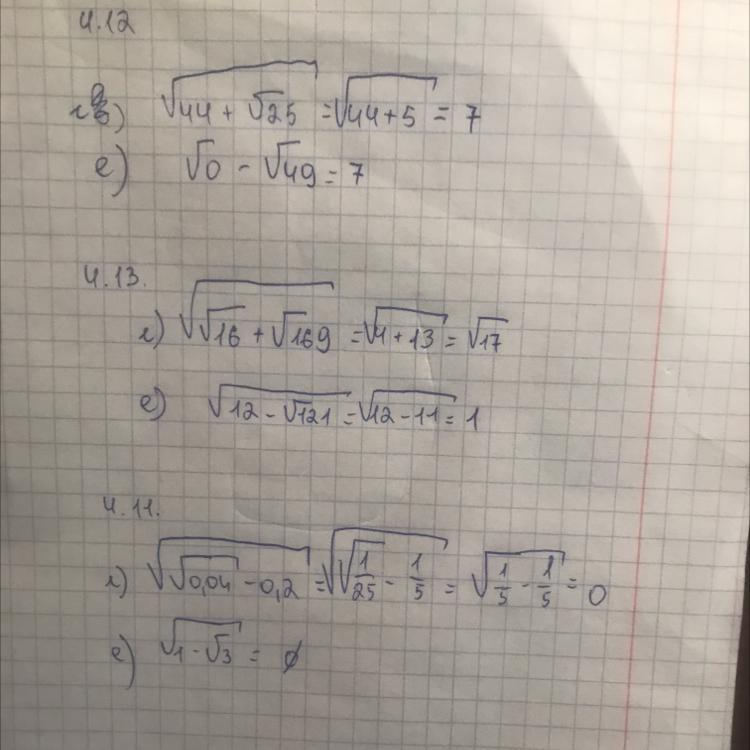 4.12
г) √(44 + √25) = √(44+5) = 7
е) √0 - √49 = 7
4.13.
г) √(√16 + √169) = √(4+13) = √17
е) √(12 - √121) = √(12-11) = 1
4.11.
г) √(√0,04 - 0,2) = √(√(1/25) - 1/5) = √(1/5 - 1/5) = 0
е) √(1-√3) = ∅